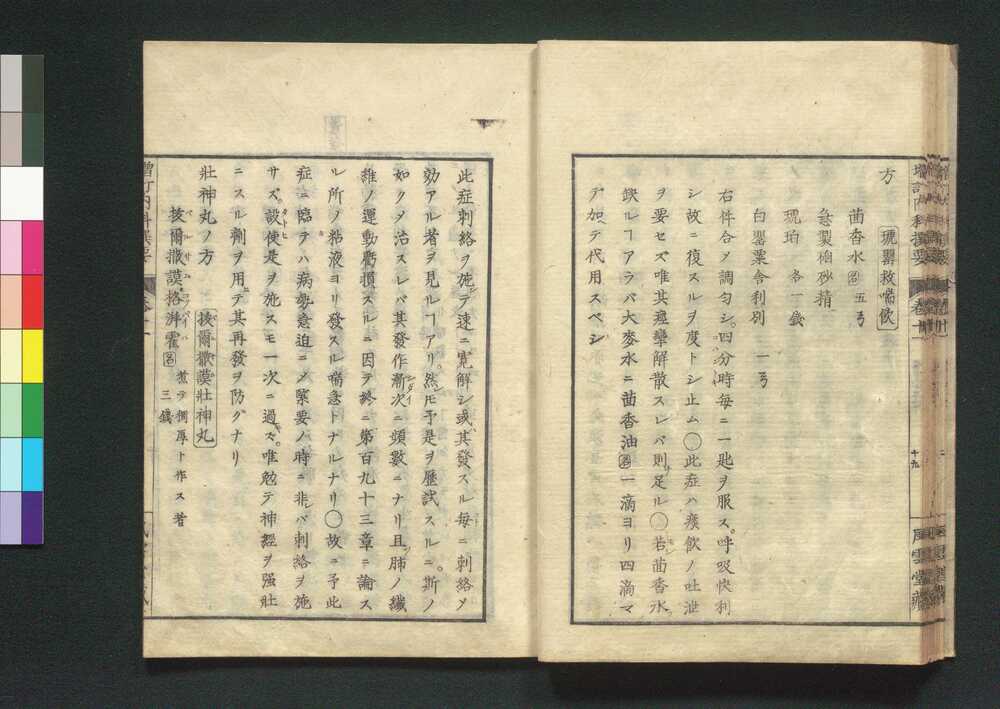 方
琥罌救喘飲
茴香水 名 五弓
急製硇砂精
琥珀 各一錢
白罌粟舎利別 一弓
右件合メ調勻シ。四分時毎ニ一匙ヲ服ス。呼吸快利
シ故ニ復スルヲ度トシ止ム〇此症ハ痰飲ノ吐泄
ヲ要セズ唯其痙攣解散スレバ則足ル〇若茴香水
缺レヿアラバ大麥水ニ茴香油 名 一滴ヨリ四滴マ
デ加テ代用スベシ
増訂内科撰要
十九
風雲堂藏
此症刺絡ヲ施シテ速ニ寛解シ或其發スル毎ニ刺絡メ
効アル者ヲ見ルヿアリ。然モ予是ヲ歴試スルニ。斯ノ
如クメ治スレバ其發作漸次ニ頻數ニナリ且肺ノ纖
維ノ運動虧損スルニ因テ終ニ第百九十三章ニ論ス
ル所ノ粘液ヨリ發スル喘急トナルナリ〇故ニ予此
症ニ臨テハ病勢急迫ニメ緊要ノ時ニ非バ刺絡ヲ施
サズ。設使是ヲ施スモ一次ニ過ズ。唯勉テ神經ヲ强壯
ニスル劑ヲ用テ其再發ヲ防グナリ
壯神丸ノ方 抜爾撒謨壯神丸
抜爾撒謨格湃霍 名 煮テ稠厚ト作ス者 三錢